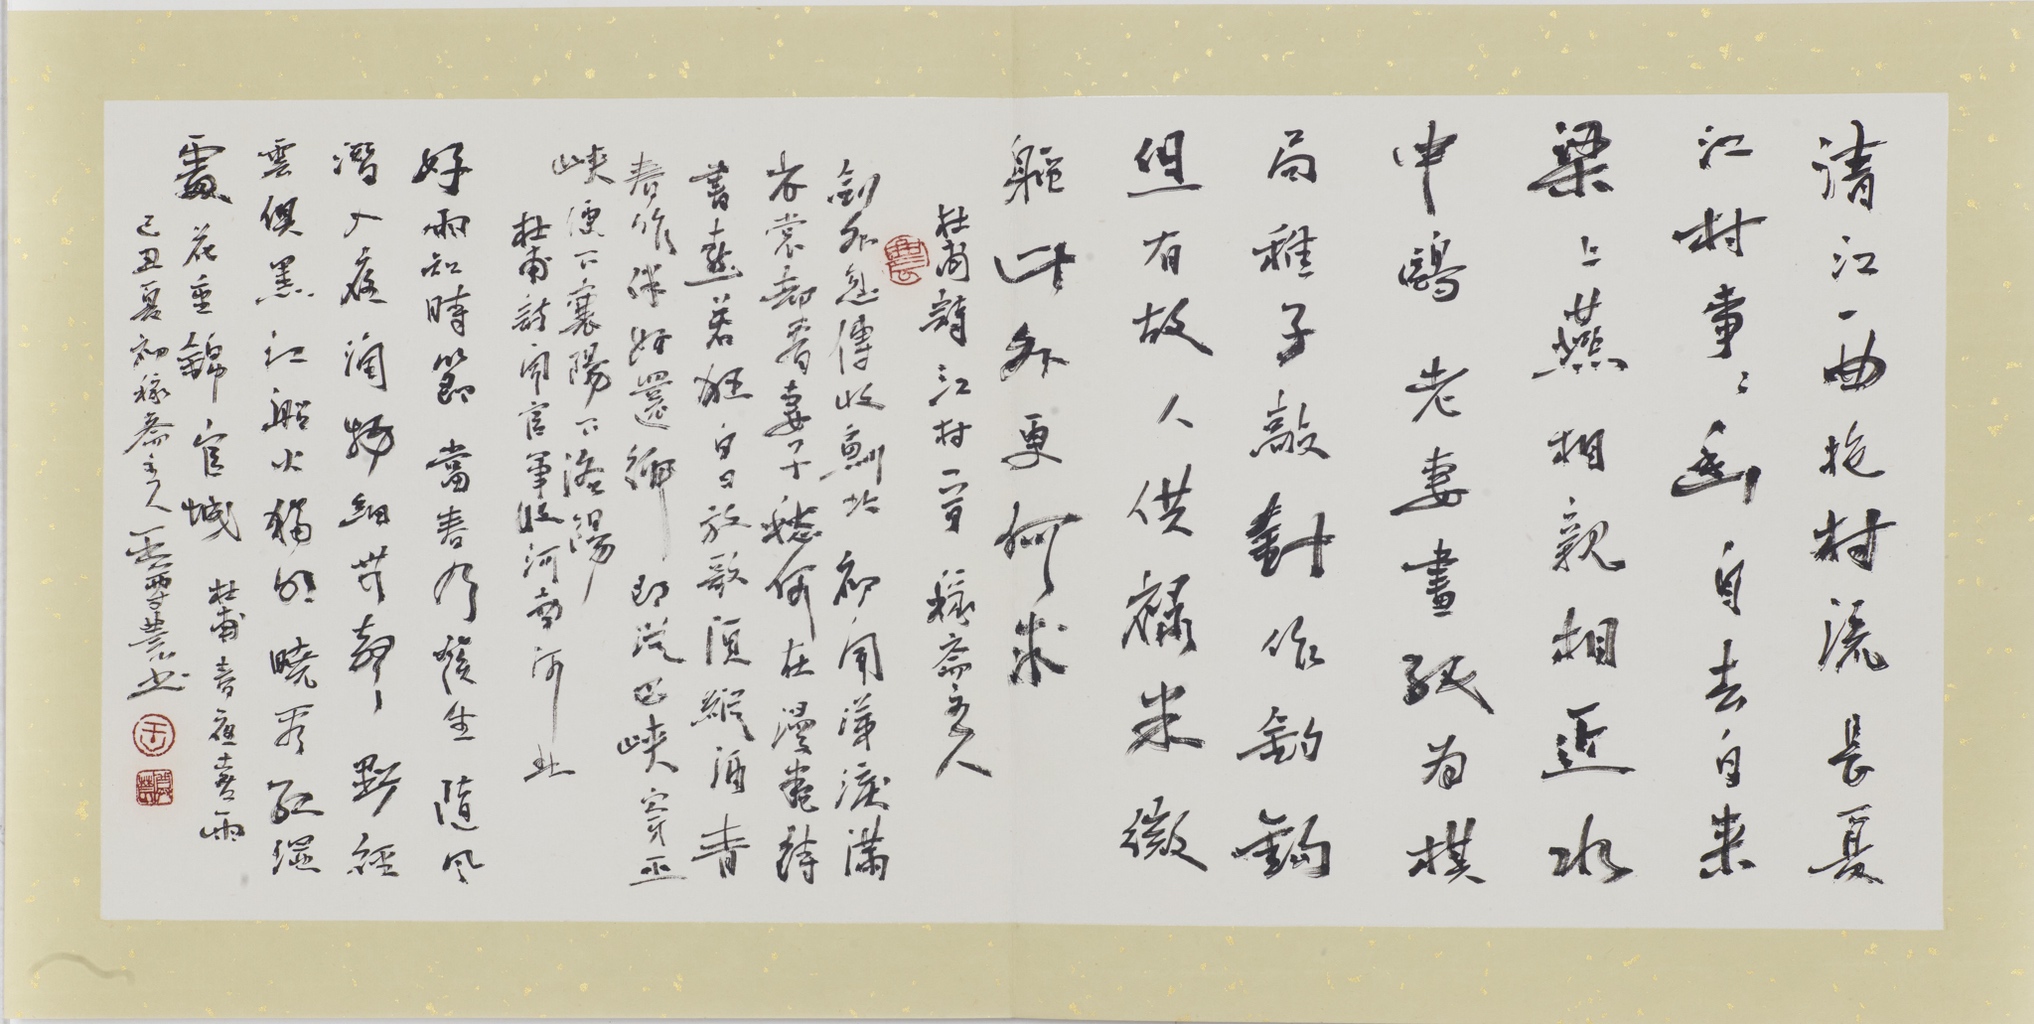 清江一曲抱村流長夏
江村事〻幽自去自来
梁上燕相親相近水
中鷗老妻畫紙為棋
局稚子敲針作釣鈎
但有故人供禄米微
軀此外更何求
杜甫詩江村一首 稼斋主人
劍外忽傳收薊北初聞涕淚滿
衣裳却看妻子愁何在漫卷詩
書喜若狂白日放歌須縱酒青
春作伴好還鄉即從巴峽穿巫
峽便下襄陽下洛陽
杜甫詩聞官軍收河南河北
好雨知時節當春乃發生隨風
潛入夜潤物細無聲野經
雲俱黑江船火獨明曉看紅濕
處花重錦官城 杜甫春夜喜雨
己丑夏初稼斋主人 農书